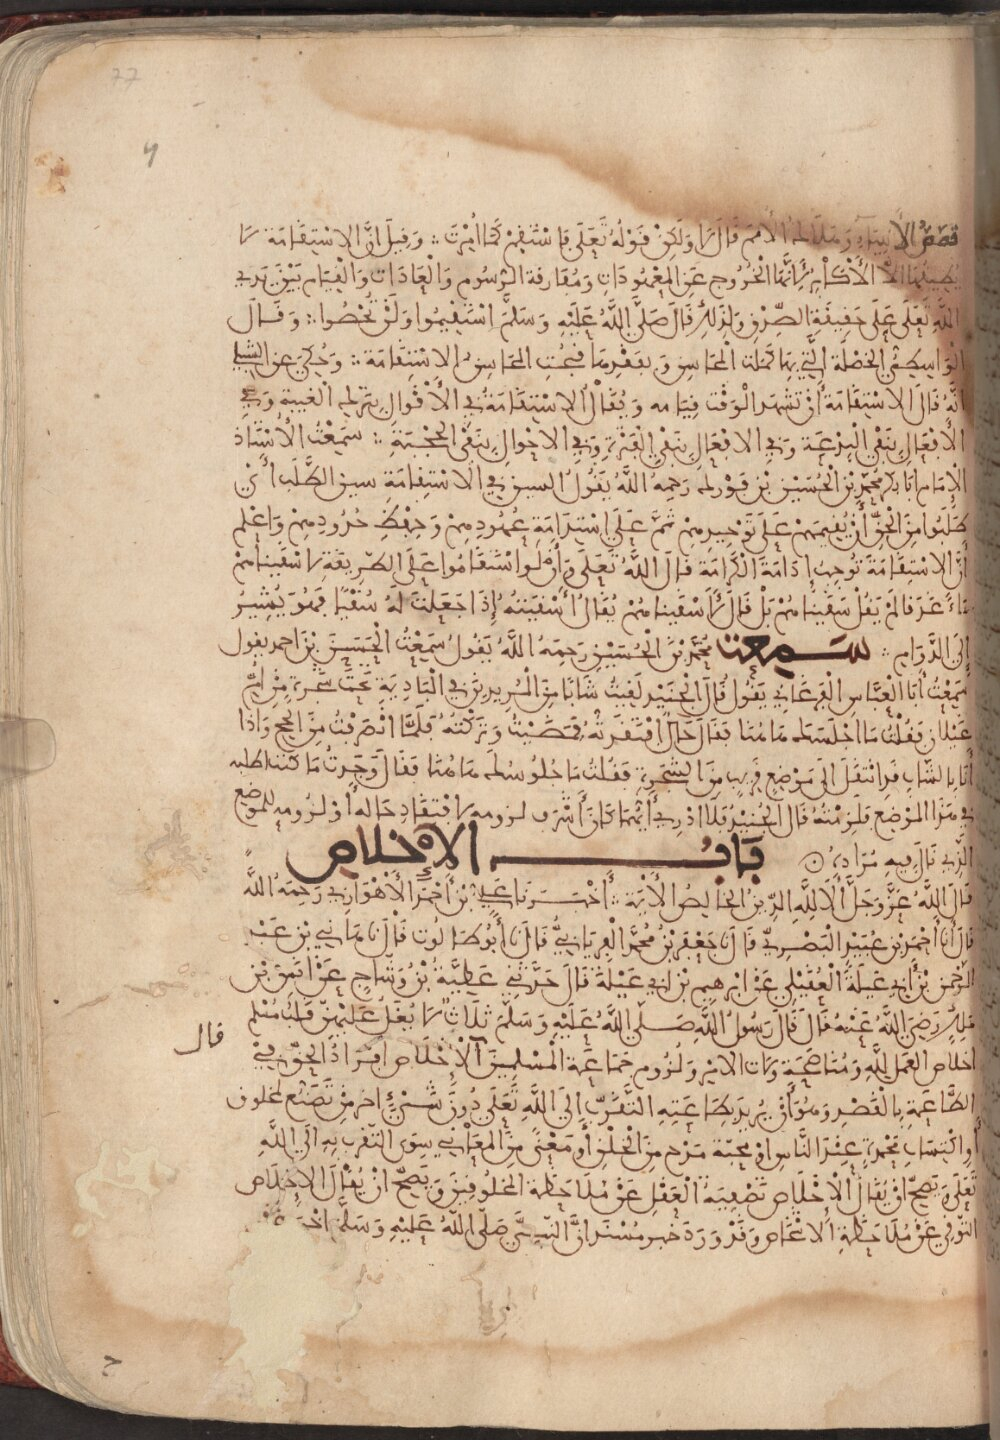 77
قصص الأنبياء وهلاك الأمم قال لا ولكن قوله تعلى فاستقم كما أمرت ∴ وقيل ان الاستقامة لا
يطيقها الا الأكابر لأنها الخروج عن المعهودات ومفارقة الرسوم والعادات والقيام بين يدي
الله تعلى على حقيقة الصدق ولذلك قال صلى الله عليه وسلم استقيموا ولن تحصوا ∴ وقال
الواسطي الخصلة التي بها كملت المحاسن وبفقدها قبحت المحاسن الاستقامة ∴ وحكي عن الشبلي
انه قال الاستقامة أن تشهد الوقت قيامه ويقال الاستقامة في الأقوال بترك الغيبة وفي
الأفعال بنفي البدعة وفي الاعمال بنفي الفترة وفي الاحوال بنفي الحجبة ∴ سمعت الأستاذ
الإمام ابا بكر محمد بن الحسين بن فورك رحمه الله يقول السين في الاستقامة سين الطلب أي
طلبوا من الحق أن يقيمهم على توحيدهم ثم على استدامة عهودهم وحفظ حدودهم واعلم
أن الاستقامة توجب إدامة الكرامة قال الله تعلى وأن لو استقاموا على الطريقة لأسقيناهم
ماءً غدقا لم يقل سقيناهم بل قال لأسقيناهم يقال أسقيته إذا جعلت له سقيًا فهو يشير
إلى الدوام ∴ سمعت محمد بن الحسين رحمه الله يقول سمعت الحسين بن احمد يقول
سمعت أبا العباس الفرغاني يقول قال الجنيد لقيت شابا من المريدين في البادية تحت شجرة من أم
غيلان فقلت ما اجلسك هاهنا فقال حال افتقدته فمضيت وتركته فلما انصرفت من الحج واذا
أنا بالشاب قد انتقل الى موضع قريب من الشجرة فقلت ما جلوسك هاهنا فقال وجدت ما كنت اطلبه
في هذا الموضع فلزمته قال الجنيد فلا ادري أيهما كان أشرف لزومه لافتقاد حاله أو لزومه للموضع
الذي نال فيه مراده
باب الإخلاص
قال الله عز وجل ألا لله الدين الخالص الأية ∴ أخبرنا علي بن أحمد الأهوازي رحمه الله
قال أنا أحمد بن عبيد البصري قال نا جعفر بن محمد الفريابي قال نا أبو طالوت قال نا هاني بن عبد
الرحمن بن أبي عبلة العقيلي عن ابرهيم بن ابي عبلة قال حدثني عطية بن وشاج عن انس بن
ملك رضي الله عنه قال قال رسول الله صلى الله عليه وسلم ثلاث لا يغل عليهن قلب مسلم
اخلاص العمل لله ومناصحة ولات الامر ولزوم جماعة المسلمين الإخلاص إفراد الحق في
قال
الطاعة بالقصد وهو أن يريد بطاعته التقرب إلى الله تعلى دون شيء اخر من تصنع لمخلوق
أو اكتساب محمدة عند الناس او محبة مدح من الخلق أو معنى من المعاني سوى التقرب به الى الله
تعلى ويصح ان يقال الإخلاص تصفية العقل عن ملاحظة المخلوقين ويصح ان يقال الإخلاص
التوقي عن ملاحظة الاشخاص وقد ورد خبر مسند ان النبي صلى الله عليه وسلم اخبر